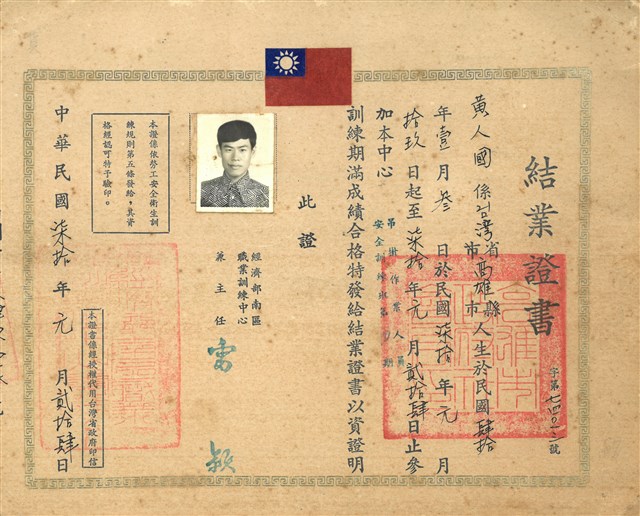 結業證書
字第七四〇一二號
黃人國係台灣省高雄縣市人生於民國肆拾
年壹月叁日於民國柒拾年元月
拾玖日起至柒拾年元月貳拾肆日止參
加本中心
吊掛作業人員
安全訓練班第期
訓練期滿成績合格特發給結業證書以資證明
此證
經濟部南區
職業訓練中心
兼主任
本證係依勞工安全衛生訓
練規則第五條發給，其資
格經認可特予驗印。
本證書係經授權代用台灣省政府印信
中華民國柒拾年元月貳拾肆日